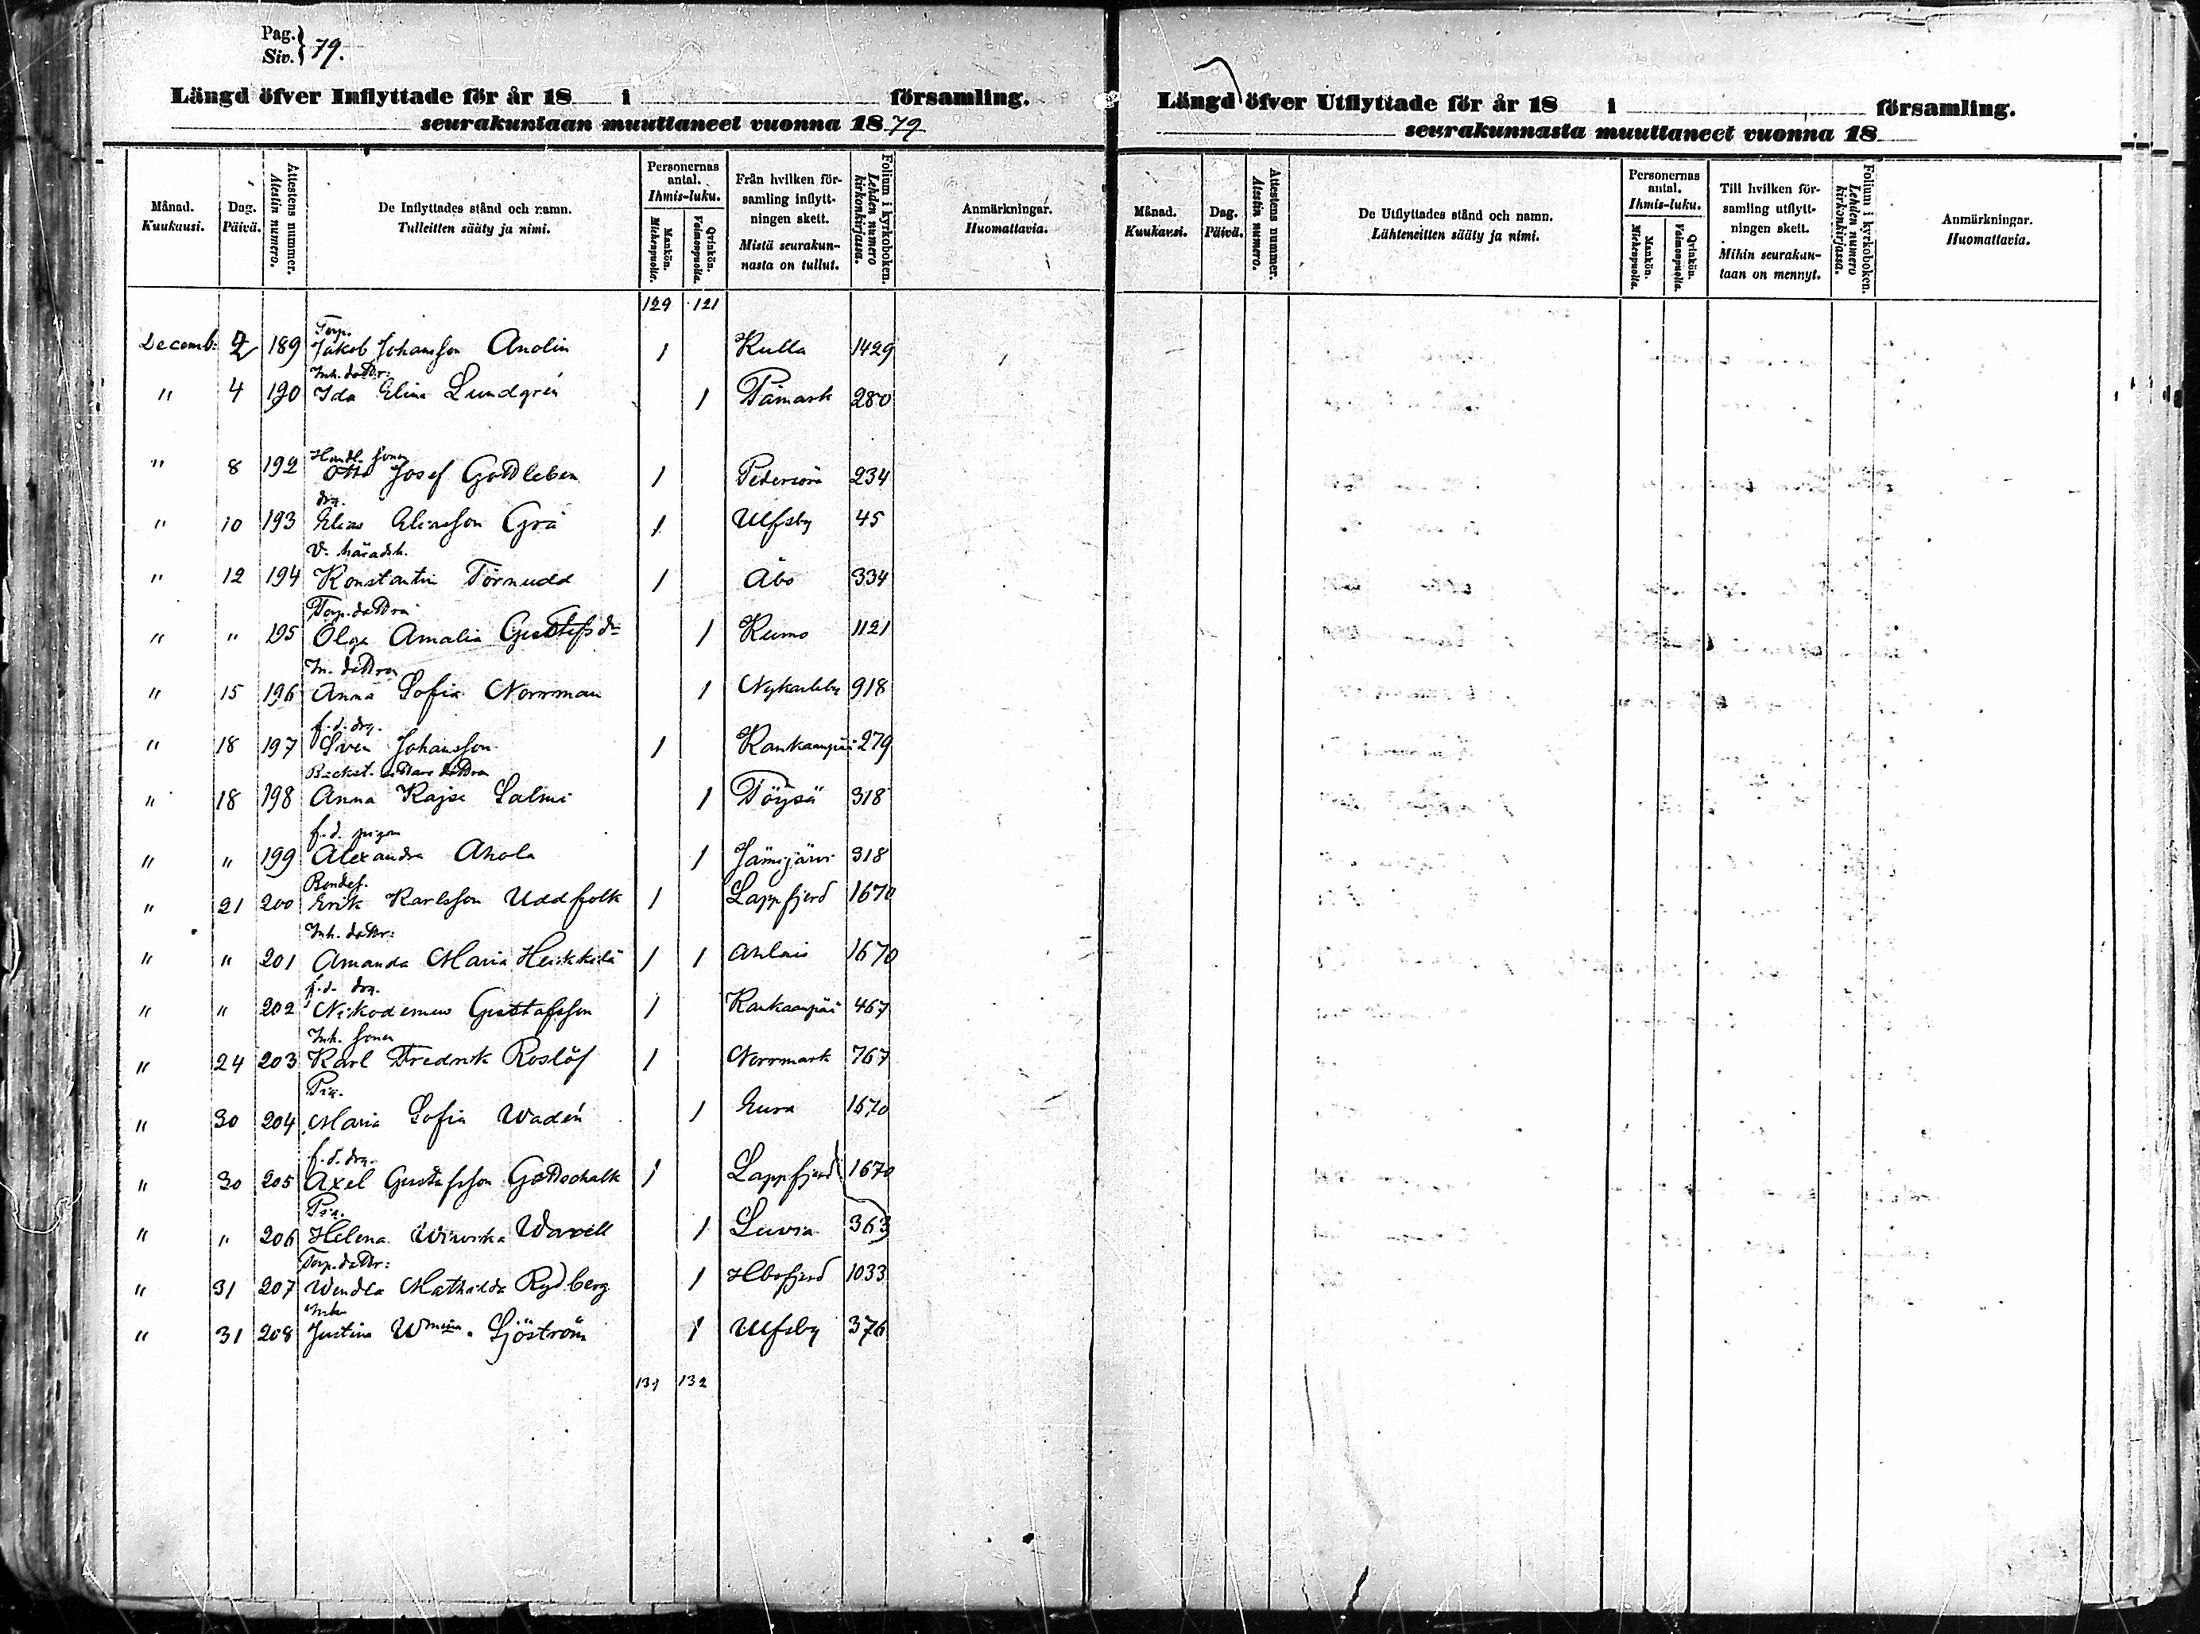 Pag. Siv. } 79.
Längd öfver Inflyttade för år 18 i församling.
seurakuntaan muuttaneet vuonna 1879
Månad. Kuukausi.
Dag. Päivä.
Attestens nummer. Atestin numero.
De Inflyttades stånd och namn. Tulleitten sääty ja nimi.
Personernas antal. Ihmis-luku.
Mankön. Miehenpuolia.
Qvinkön. Vaimonpuolia.
Från hvilken församling inflyttningen skett. Mistä seurakunnasta on tullut.
Folium i kyrkoboken. Lehden numero kirkonkirjassa.
Anmärkningar. Huomattavia.
129 121
Torp.
Decemb: 2 189 Jakob Johansson Anolin 1 Kulla 1429
Inh. dottr:
" 4 190 Ida Elina Lundgrén 1 Påmark 280
Handl. sonen
" 8 192 Otto Josef Gottleben 1 Pedersöre 234
drg.
" 10 193 Elias Eliasson Grå 1 Ulfsby 45
V. häradsh.
" 12 194 Konstantin Törnudd 1 Åbo 334
Torp. dottra
" " 195 Olga Amalia Gustafsdr 1 Kumo 1121
In. dottren
" 15 196 Anna Sofia Norrman 1 Nykarleby 918
f. d. drg.
" 18 197 Sven Johansson 1 Kankaanpää 279
Backst. sittare dottra
" 18 198 Anna Kajsa Salmi 1 Töysä 318
f. d. pigan
" " 199 Alexandra Ahola 1 Jämijärvi 318
Bondes.
" 21 200 Erik Karlsson Uddfolk 1 Lappfjerd 1670
Inh. dottr:
" " 201 Amanda Maria Heikkilä 1 1 Ahlais 1670
f. d. drg.
" " 202 Nikodemus Gustafsson 1 Kankaanpää 467
Inh. sonen
" 24 203 Karl Fredrik Roslöf 1 Norrmark 767
Pig.
" 30 204 Maria Sofia Wadén 1 Eura 1670
f. d. drg.
" 30 205 Axel Gustafsson Gottschalk 1 Lappfjerd 1670
Pig.
" " 206 Helena Wavell 1 Luvia 363
Torp. dottr:
" 31 207 Wendla Mathilda Rydberg 1 1033
Inh
" 31 208 Justina Wmina. Sjöström 1 Ulfsby 376
132
Längd öfver Utflyttade för år 18 i församling.
seurakunnasta muuttaneet vuonna 18
Månad. Kuukausi.
Dag. Päivä.
Attestens nummer. Atestin numero.
De Utflyttades stånd och namn. Lähteneitten sääty ja nimi.
Personernas antal. Ihmis-luku.
Mankön. Miehenpuolia.
Qvinkön. Vaimonpuolia.
Till hvilken församling utflyttningen skett. Mihin seurakuntaan on mennyt.
Folium i kyrkoboken. Lehden numero kirkonkirjassa.
Anmärkningar. Huomattavia.